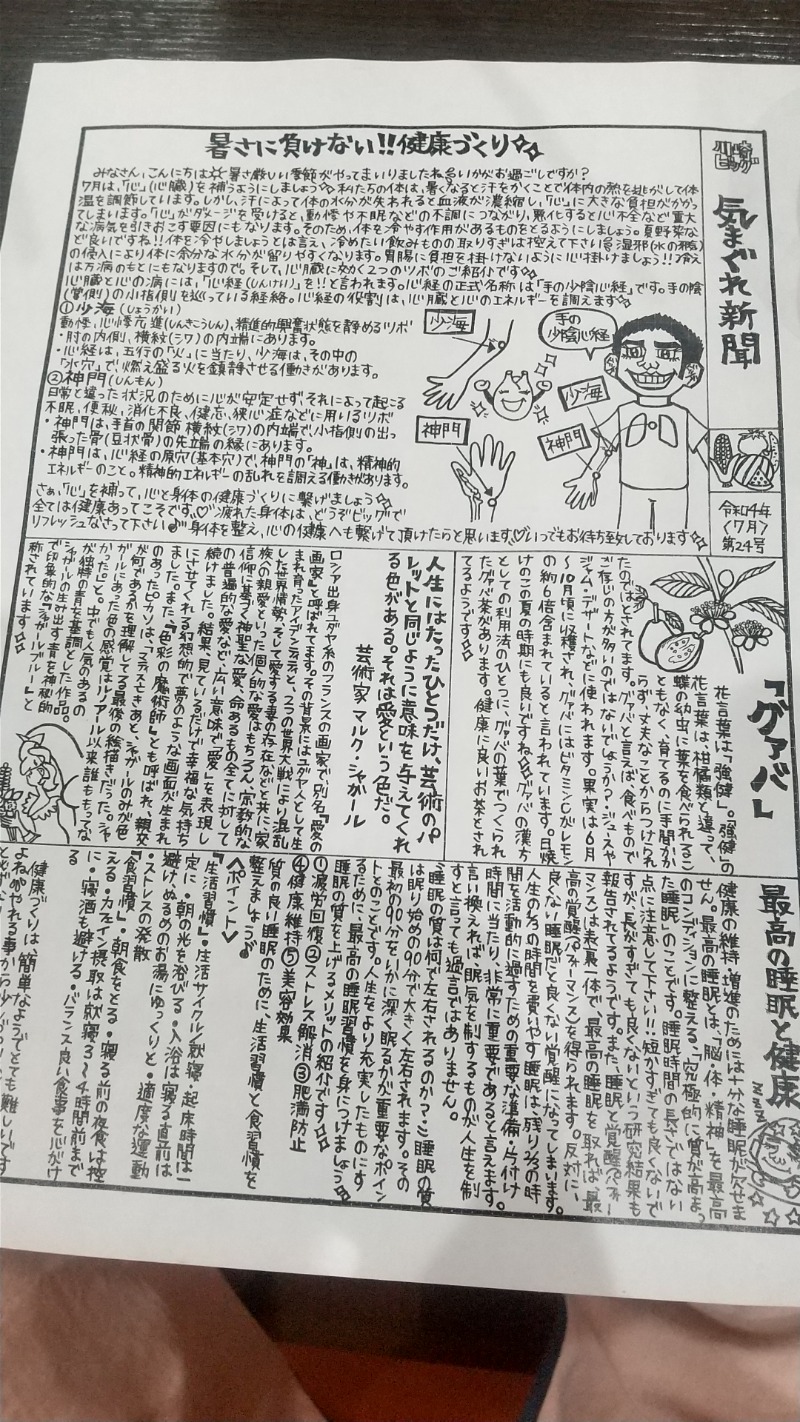 暑さに負けない!!健康づくり
みなさん、こんにちは 暑さ厳しい季節がやってまいりましたね いかがお過ごしですか?
7月は、「心」(心臓)を補うようにしましょう 私たちの体は、暑くなると汗をかくことで体内の熱を逃がして体
温を調節しています。しかし、汗によって体の水分が失われると血液が濃縮し、「心」に大きな負担がかかっ
てしまいます。「心」がダメージを受けると、動悸や不眠などの不調につながり、悪化すると心不全など重大
な病気を引きおこす要因にもなります。そのため、体を冷やす作用があるものをとるようにしましょう。夏野菜な
ど良いですね!!体を冷やしましょうとは言え、冷めたい飲みものの取りすぎは控えて下さい 湿邪(水の邪気)
の侵入により体に余分な水分が留りやすくなります。胃腸に負担を掛けないように心掛けましょう!!冷え
は万病のもとにもなりますので。そして、心臓に効く2つのツボのご紹介です
心臓と心の病には、「心経(しんけい)」を!!と言われます。心経の正式名称は「手の少陰心経」です。手の陰
(掌側)の小指側を巡っている経絡。心経の役割は、心臓と心のエネルギーを調えます
①少海(しょうかい)
動悸、心悸亢進(しんきこうしん)、精進的興奮状態を静めるツボ
・肘の内側、横紋(シワ)の内端にあります。
・心経は、五行の「火」に当たり、少海は、その中の
「水穴」で、燃え盛る火を鎮静させる働きがあります。
②神門(しんもん)
日常と違った状況のために心が安定せず、それによって起こる
不眠、便秘、消化不良、健忘、狭心症などに用いるツボ
・神門は、手首の関節横紋(シワ)の内端で、小指側の出っ
張った骨(豆状骨)の先端の縁にあります。
・神門は、心経の原穴(基本穴)で、神門の「神」は、精神的
エネルギーのこと。精神的エネルギーの乱れを調える働きがあります。
さぁ、「心」を補って、心と身体の健康づくりに繋げましょう
全ては健康あってこそです 疲れた身体は、どうぞビッグで
リフレッシュなさって下さい 身体を整え、心の健康へも繋げて頂けたらと思います いつでもお待ち致しております
少海
神門
手の
少陰心経
少海
神門
川崎
ビッグ
気まぐれ新聞
令和4年
〈7月〉
第24号
「グァバ」
花言葉は、「強健」。「強健」の
花言葉は、柑橘類と違って、
蝶の幼虫に葉を食べられるこ
ともなく、育てるのに手間がか
らず、丈夫なことからつけられ
たのではとされてます。グァバと言えば、食べもので
ご存じの方が多いのではないでしょうか?ジュースや
ジャム・デザートなどに使われます。果実は6月
～10月頃に収穫され、グァバにはビタミンCがレモン
の約6倍含まれていると言われています。日焼
けのこの夏の時期にも良いですね グァバの漢方
としての利用法のひとつに、グァバの葉でつくられ
たグァバ茶があります。健康に良いお茶とされ
てるようです
人生にはたったひとつだけ、芸術のパ
レットと同じように意味を与えてくれ
る色がある。それは愛という色だ。
芸術家 マルク・シャガール
ロシア出身ユダヤ系のフランスの画家で、別名『愛の
画家』と呼ばれてます。その背景にはユダヤ人として生
まれ育ったアイデンティティと、2つの世界大戦により混乱
した世界情勢、そして愛する妻の存在などと共に家
族への親愛といった個人的な愛はもちろん、宗教的な
信仰に基づく神聖な愛、命あるもの全てに対して
の普遍的な愛など、広い意味で「愛」を表現し
続けました。結果、見ているだけで幸福な気持ち
にさせてくれる幻想的で夢のような画面が生まれ
ました。また、『色彩の魔術師』とも呼ばれ、親交
のあったピカソは、「マティス亡きあと、シャガールのみが色
が何であるかを理解してる最後の絵描きだった。シャ
ガールにあった色の感覚は、ルノアール以来誰ももってな
かった」と。中でも人気のあるの
が独特の青を基調とした作品。
シャガールの生み出す青を神秘的
で印象的な『シャガールブルー』と
称されています
最高の睡眠と健康
健康の維持・増進のためには十分な睡眠が欠せま
せん。最高の睡眠とは、「脳・体・精神」を最高
のコンディションに整える、「究極的に質が高まっ
た睡眠」のことです。睡眠時間の長さではない
点に注意して下さい!!短かすぎても良くないで
すが、長がすぎても良くないという研究結果も
報告されてるようです。また、睡眠と覚醒(パフォー
マンス)は表裏一体で、最高の睡眠を取れば、最
高の覚醒(パフォーマンス)を得られます。反対に、
良くない睡眠だと良くない覚醒になってしまいます。
人生の1/3の時間を費いやす睡眠は、残り2/3の時
間を活動的に過すための重要な準備・片付け
時間に当たり、非常に重要であると言えます。
言い換えれば、眠気を制するものが人生を制
すと言っても過言ではありません。
「睡眠の質は何で左右されるのか?」睡眠の質
は眠り始めの90分で大きく左右されます。その
最初の90分をいかに深く眠るかが重要なポイン
トとのことです。人生をより充実したものにす
るために、最高の睡眠習慣を身につけましょう
睡眠の質を上げるメリットの紹介です
①疲労回復②ストレス解消③肥満防止
④健康維持⑤美容効果
質の良い睡眠のために、生活習慣と食習慣を
整えましょう
〈ポイント〉
『生活習慣』・生活サイクル(就寝・起床時間は一
定に・朝の光を浴びる・入浴は寝る直前は
避け、ぬるめのお湯にゆっくりと・適度な運動
・ストレスの発散
『食習慣』・朝食をとる・寝る前の夜食は控
える・カフェイン摂取は就寝3～4時間前まで
に・寝酒も避ける・バランス良い食事を心がけ
る
健康づくりは簡単なようでとても難しいです